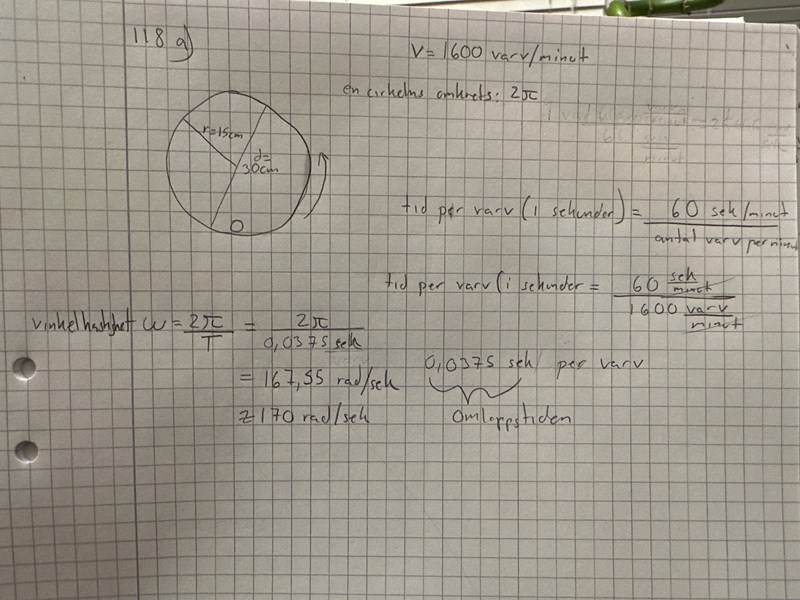 118 a)
V = 1600 varv/minut
en cirkelns omkrets: 2π
r=15cm
d=
30cm
tid per varv (i sekunder) = 60 sek/minut
antal varv per minut
tid per varv (i sekunder = 60 sek/minut
1600 varv/minut
vinkelhastighet ω = 2π/T = 2π/0,0375 sek
= 167,55 rad/sek
0,0375 sek per varv
≈170 rad/sek
Omloppstiden